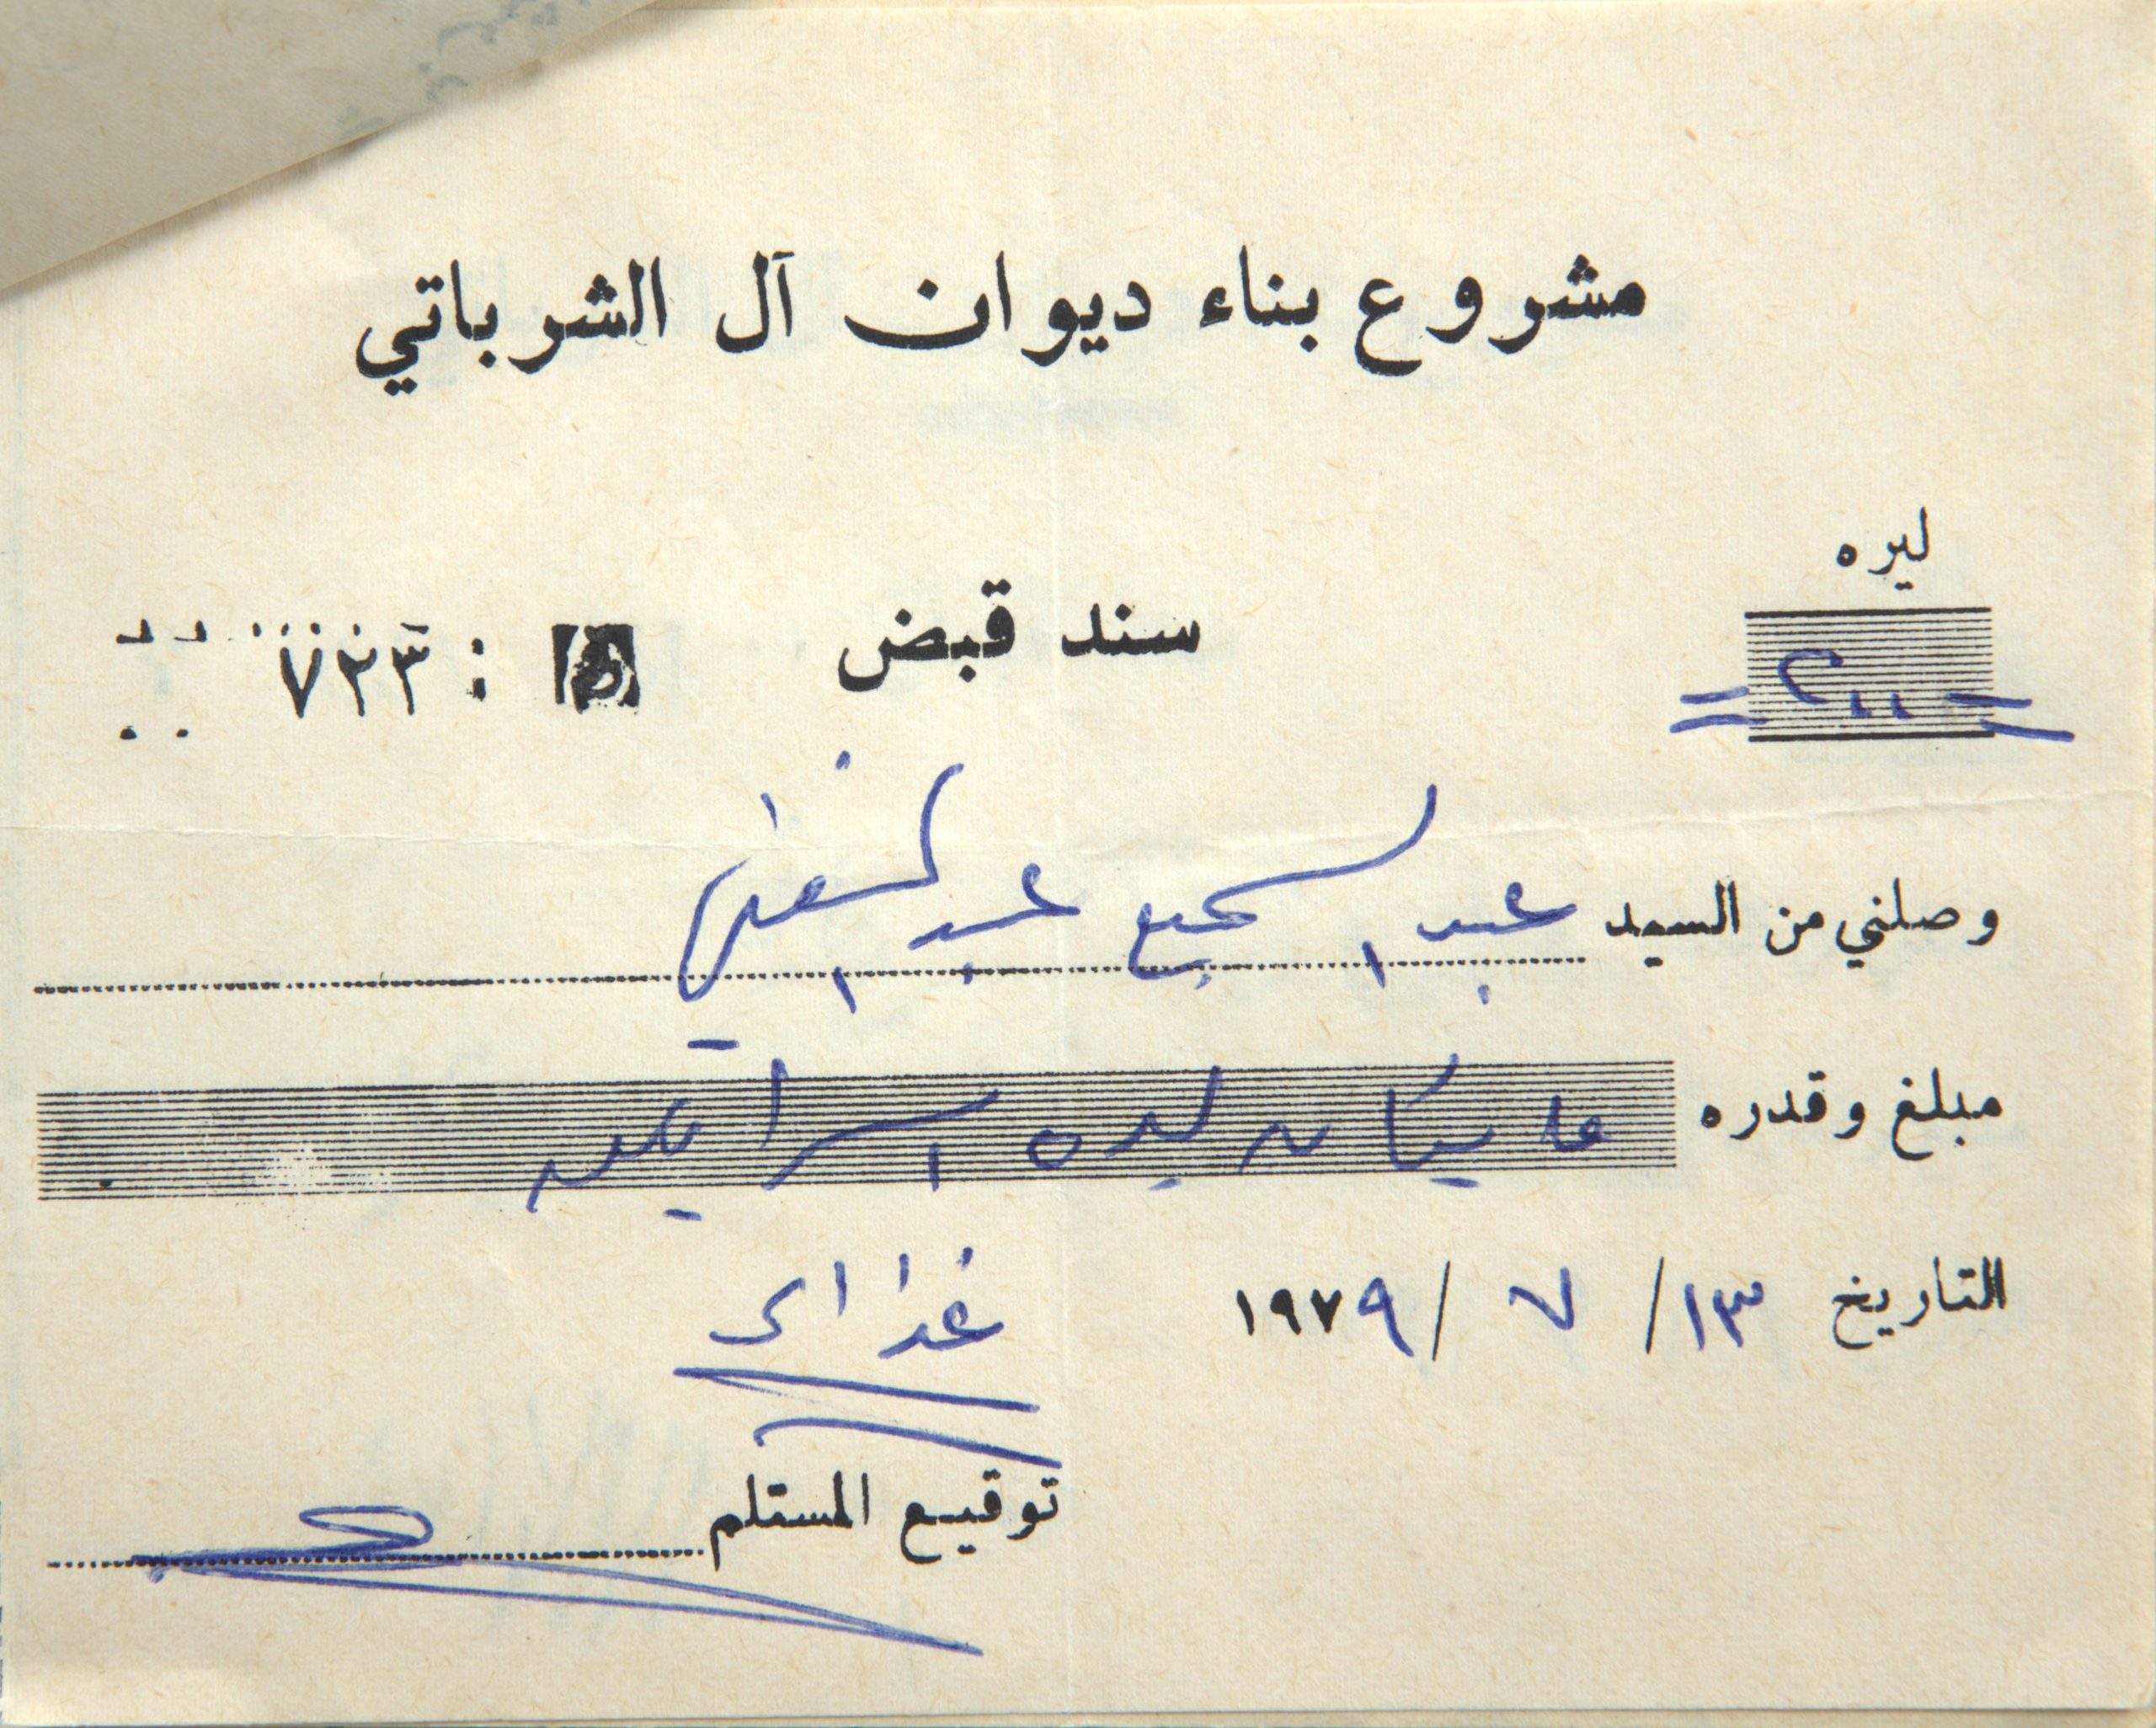 مشروع بناء ديوان آل الشرباتي
ليره
سند قبض : ٧٢٣
=٢٠٠=
وصلني من السيد عبد السميع عبد
مبلغ وقدره مايتان ليره اسرائيليه
التاريخ ١٣/ ٧ /١٩٧٩
توقيع المستلم